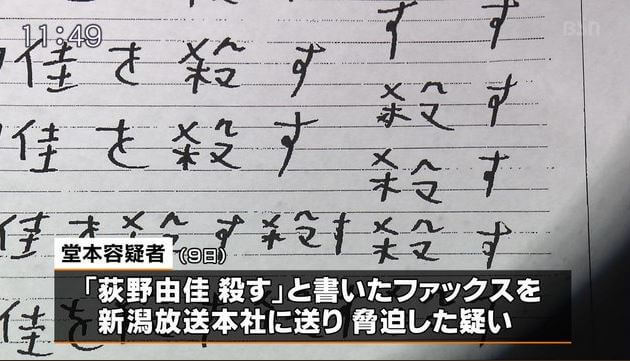 11:49
BSN
す す
佳を殺す
殺す
佳を殺す
殺す
佳を殺す殺す殺す
堂本容疑者
(9日)
「荻野由佳 殺す」と書いたファックスを
新潟放送本社に送り 脅迫した疑い